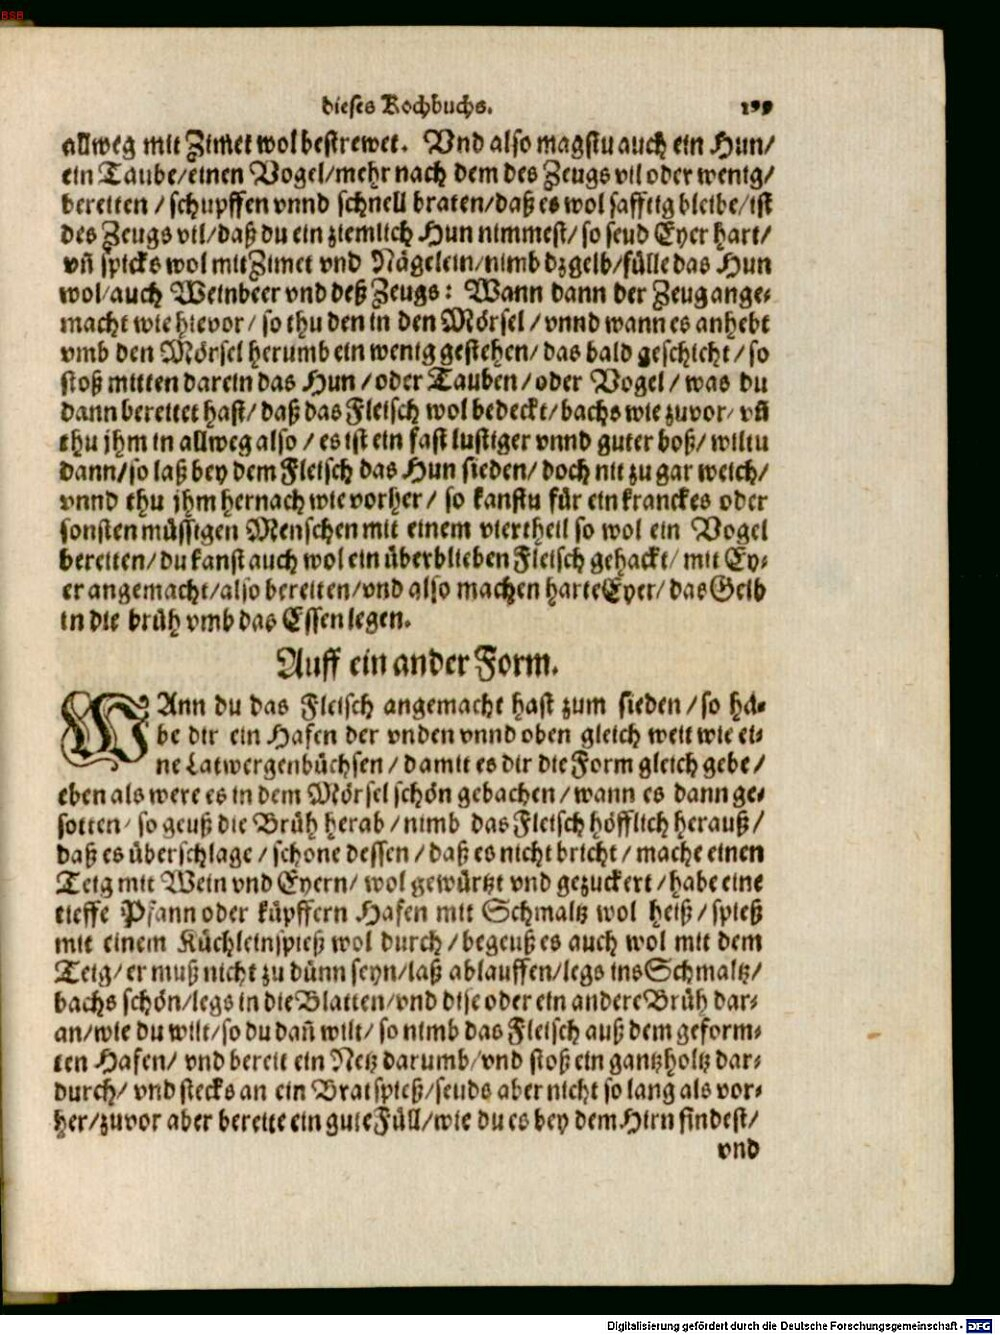 BSB
dieses Kochbuchs. 199
allweg mit Zimet wol bestrewet. Vnd also magstu auch ein Hun/
ein Taube/einen Vogel/mehr nach dem des Zeugs vil oder wenig/
bereiten / schupffen vnnd schnell braten/daß es wol safftig bleibe/ist
des Zeugs vil/daß du ein ziemlich Hun nimmest/ so seud Eyer hart/
vñ spicks wol mit Zimet vnd Nägelein/nimb dz gelb/fülle das Hun
wol/auch Weinbeer vnd deß Zeugs: Wann dann der Zeug ange-
macht wie hievor/ so thu den in den Mörsel/ vnnd wann es anhebt
vmb den Mörsel herumb ein wenig gestehen/ das bald geschicht/ so
stoß mitten darein das Hun / oder Tauben/ oder Vogel/ was du
dann bereitet hast/ daß das Fleisch wol bedeckt/bachs wie zuvor/ vñ
thu jhm in allweg also / es ist ein fast lustiger vnnd guter boß/ wiltu
dann/so laß bey dem Fleisch das Hun sieden/ doch nit zu gar weich/
vnnd thu jhm hernach wie vorher/ so kanstu für ein kranckes oder
sonsten müssigen Menschen mit einem viertheil so wol ein Vogel
bereiten/du kanst auch wol ein überblieben Fleisch gehackt/ mit Ey-
er angemacht/also bereiten/vnd also machen harte Eyer/ das Gelb
in die brüh vmb das Essen legen.
Auff ein ander Form.
WAnn du das Fleisch angemacht hast zum sieden / so ha-
be dir ein Hafen der vnden vnnd oben gleich weit wie ei-
ne Latwergenbüchsen / damit es dir die Form gleich gebe/
eben als were es in dem Mörsel schön gebachen / wann es dann ge-
sotten/ so geuß die Brüh herab / nimb das Fleisch höfflich herauß/
daß es überschlage / schone dessen / daß es nicht bricht / mache einen
Teig mit Wein vnd Eyern/ wol gewürtzt vnd gezuckert / habe eine
tieffe Pfann oder küpffern Hafen mit Schmaltz wol heiß/ spieß
mit einem Küchleinspieß wol durch / begeuß es auch wol mit dem
Teig/ er muß nicht zu dünn seyn/laß ablauffen/legs ins Schmaltz/
bachs schön/legs in die Blatten/vnd dise oder ein andere Brüh dar-
an/wie du wilt/so du dañ wilt/ so nimb das Fleisch auß dem geform-
ten Hafen/ vnd bereit ein Netz darumb/vnd stoß ein gantz holtz dar-
durch/ vnd stecks an ein Bratspieß/seuds aber nicht so lang als vor-
her/zuvor aber bereite ein gute Füll/wie du es bey dem Hirn findest/
vnd
Digitalisierung gefördert durch die Deutsche Forschungsgemeinschaft - DFG